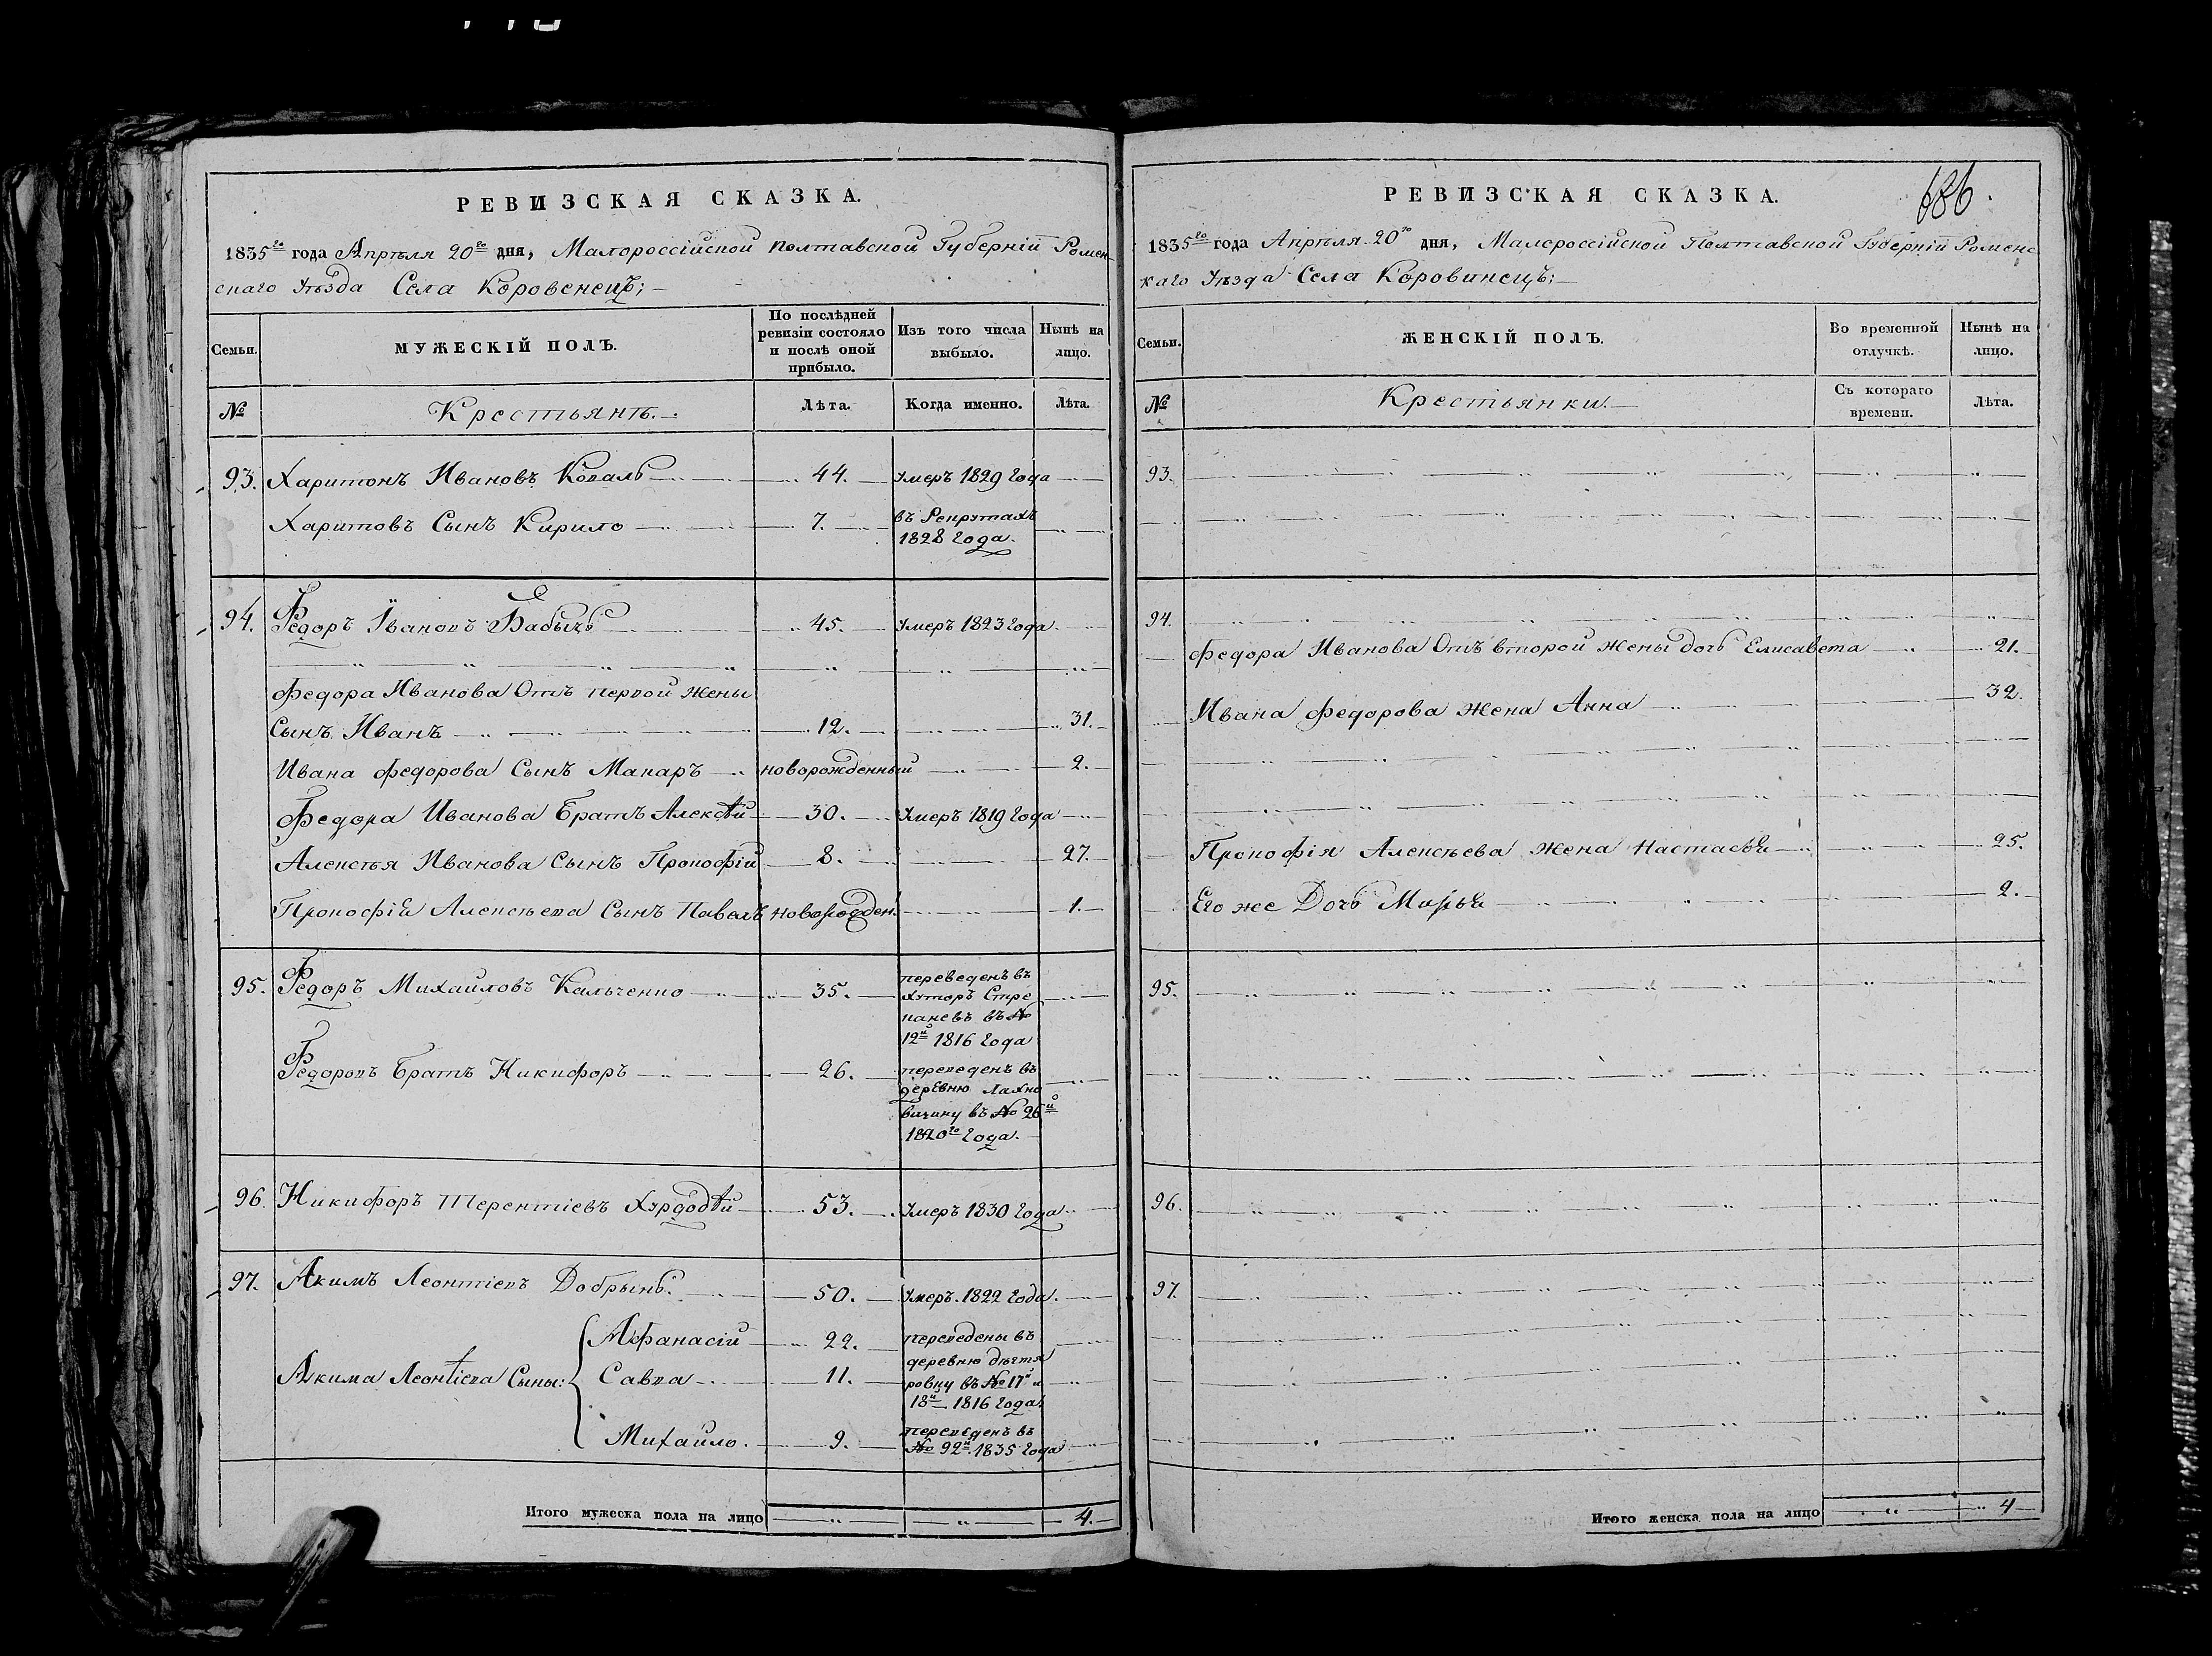 РЕВИЗСКАЯ СКАЗКА.
1835го года Апрѣля 20го дня, Малороссійской Полтавской Губерніи Ромен
скаго Уѣзда Села Коровенецъ;
Семьи.
МУЖЕСКІЙ ПОЛЪ.
По послѣдней
ревизіи состояло
и послѣ оной
прибыло.
Изъ того числа
выбыло.
Нынѣ на
лицо.
№
Крестьянъ.
Лѣта.
Когда именно.
Лѣта.
93. Харитонъ Ивановъ Коваль 44. Умеръ 1829 года
Харитовъ Сынъ Кирило 7. въ Рекрутахъ
1828 года.
94. Федоръ Івановъ Бабычъ 45. Умеръ 1823 года.
Федора Иванова Отъ первой жены
Сынъ Иванъ 12. 31.
Ивана Федорова Сынъ Макаръ новорожденный 2.
Федора Иванова Братъ Алексѣй 30. Умеръ 1819 года
Алексѣя Иванова Сынъ Прокофій 8. 27.
Прокофія Алексѣева Сынъ Павелъ новорожден. 1.
95. Федоръ Михайловъ Кальченко 35. переведенъ въ
хуторъ
въ №
12й 1816 года
Федоровъ Братъ Никифоръ 26. переведенъ въ
деревню Лахно
вщину въ № 26й
1820го года.
96. Никифоръ Терентіевъ 53. Умеръ 1830 года.
97. Акимъ Леонтіевъ Добрынь. 50. Умеръ 1822 года.
Акима Леонтіева Сыны: Афанасій 22. переведены въ
деревню Дѣгтя
Савва 11. ровку въ № 17й и
18й 1816 года.
Михайло. 9. переведенъ въ
№ 92й 1835 года
Итого мужеска пола на лицо 4.
РЕВИЗСКАЯ СКАЗКА.
686.
1835го года Апрѣля 20го дня, Малороссійской Полтавской Губерніи Роменс
каго Уѣзда Села Коровинецъ;
Семьи.
ЖЕНСКІЙ ПОЛЪ.
Во временной
отлучкѣ.
Нынѣ на
лицо.
№
Крестьянки.
Съ котораго
времени.
Лѣта.
93.
94.
Федора Иванова Отъ второй жены дочь Елисавета 21.
Ивана Федорова жена Анна 32.
Прокофія Алексѣева жена Настасья 25.
Его же Дочь Марья 2.
95.
96.
97.
Итого женска пола на лицо 4